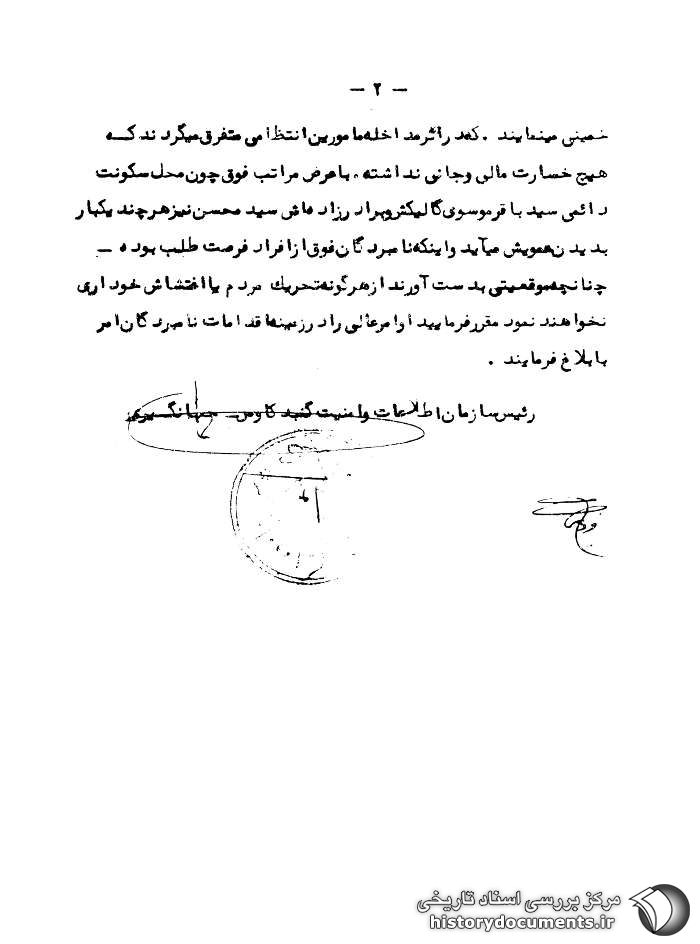 — ۲ —
خمینی مینمایند . که در اثر مداخله مامورین انتظامی متفرق میگردند که
هیچ خسارت مالی و جانی نداشته ، با عرض مراتب فوق چون محل سکونت
دائمی سید باقر موسوی گالیکش و برادرزاده اش سید محسن نیز هر چند یکبار
بدیدن عمویش میآید و اینکه نامبردگان فوق از افراد فرصت طلب بوده —
چنانچه موقعیتی بدست آورند از هرگونه تحریک مردم یا اغتشاش خودداری
نخواهند نمود مقرر فرمایید اوامر عالی را در زمینه اقدامات نامبردگان امر
بابلاغ فرمایند .
رئیس سازمان اطلاعات و امنیت گنبد کاوس – جهانگیری
مرکز بررسی اسناد تاریخی
historydocuments.ir